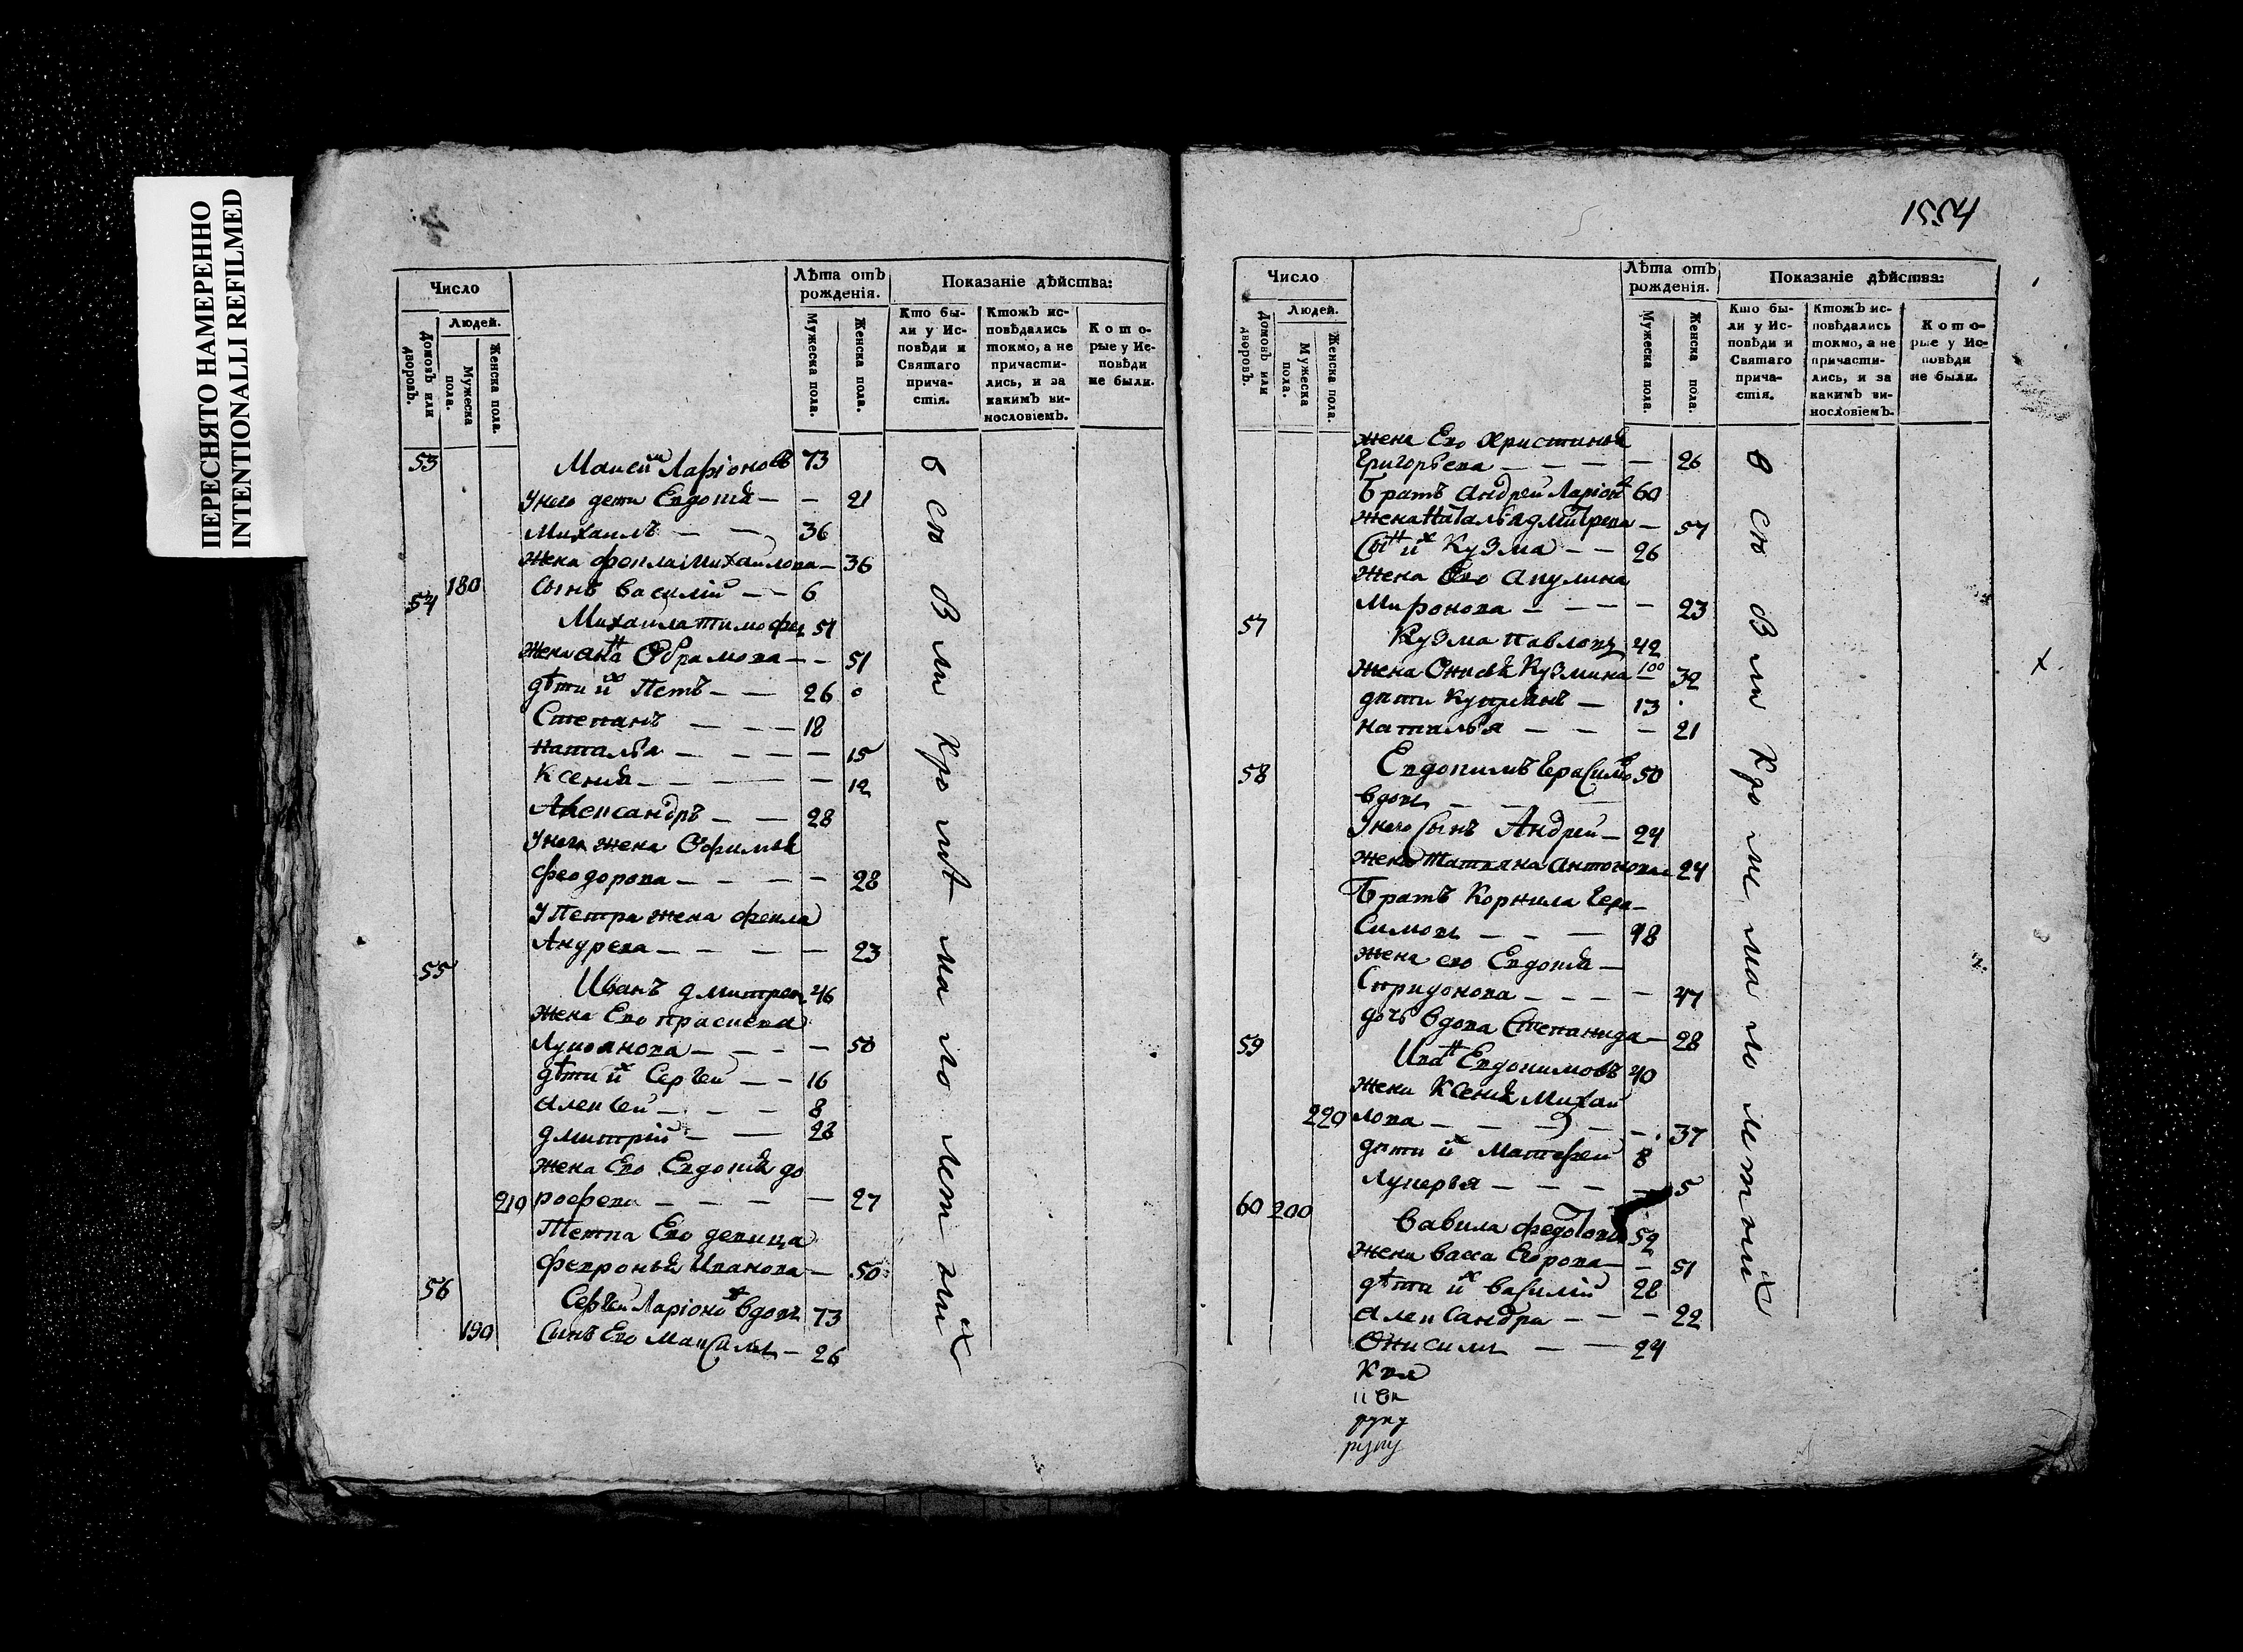 ПЕРЕСНЯТО НАМЕРЕННО
INTENTIONALLI REFILMED
Число
Людей.
Домовъ или дворовъ.
Мужеска пола.
Женска пола.
Лѣта отъ рожденія.
Мужеска пола.
Женска пола.
Показаніе дѣйства:
Кто бы-
ли у Ис-
повѣди и
Святаго
прича-
стія.
Ктожъ ис-
повѣдались
токмо, а не
причасти-
лись, и за
какимъ ви-
нословіемъ.
Кото-
рые у Ис-
повѣди
не были.
53 Ларіоновъ 73
У него дети Евдотія — — 21
Михаилъ — — 36
жена фекла Михаилова — 36
180 Сынъ василій — — 6
54 Михаила тимофе 51
жена анна — — 51
дѣти их Петъ — — 26
Степанъ — — — 18
наталья — — — — 15
Ксенія — — — — 12
Александръ — — 28
У него жена Офимья
феодорова — — — — 28
У Петра жена фекла
Андрева — — — — 23
55 Иванъ дмитрев 46
жена Его праскева
Лукоанова — — — — 50
дѣти их Сергеи — — 16
Алексеи — — — 8
дмитрій — — 28
жена Его Евдокія до
210 рофева — — — — 27
Тетка Его девица
февронья Иванова — 50
56 Сергеи Ларіонов вдовъ 73
190 Сынъ Его Максимъ — 26
в сю в ли кро мѣ ма ло лет них
1554
Число
Людей.
Домовъ или дворовъ.
Мужеска пола.
Женска пола.
Лѣта отъ рожденія.
Мужеска пола.
Женска пола.
Показаніе дѣйства:
Кто бы-
ли у Ис-
повѣди и
Святаго
прича-
стія.
Ктожъ ис-
повѣдались
токмо, а не
причасти-
лись, и за
какимъ ви-
нословіемъ.
Кото-
рые у Ис-
повѣди
не были.
жена Его христинья
григорьева — — — — 26
братъ андреи Ларіонов 60
жена Наталья дмитрева — 57
Сын их Кузма — — 26
жена Его акулина
Миронова — — — — 23
57 Кузма павловъ 42
жена Онисья Кузмина 32
дѣти Купріянъ — 13
наталья — — — 21
58 Евдокимъ герасимов 50
вдовъ — — —
У него Сынъ Андреи — 24
жена татьяна антонова 24
братъ Корнила гера-
симовъ — — — 48
жена его Евдотія —
Спиридонова — — — — 47
дочь вдова Степанида — 28
59 Иван Евдокимовъ 40
жена Ксенія Михаи
220 лова — — — — 37
дѣти их Матфеи 8
Лукерья — — — — 5
60 200 вавила федотовъ 52
жена васса Егорова — — 51
дѣти их василіи 28
александра — — — 22
Онисимъ — — 24
руку
в сю в ли кро ме ма ло лет них